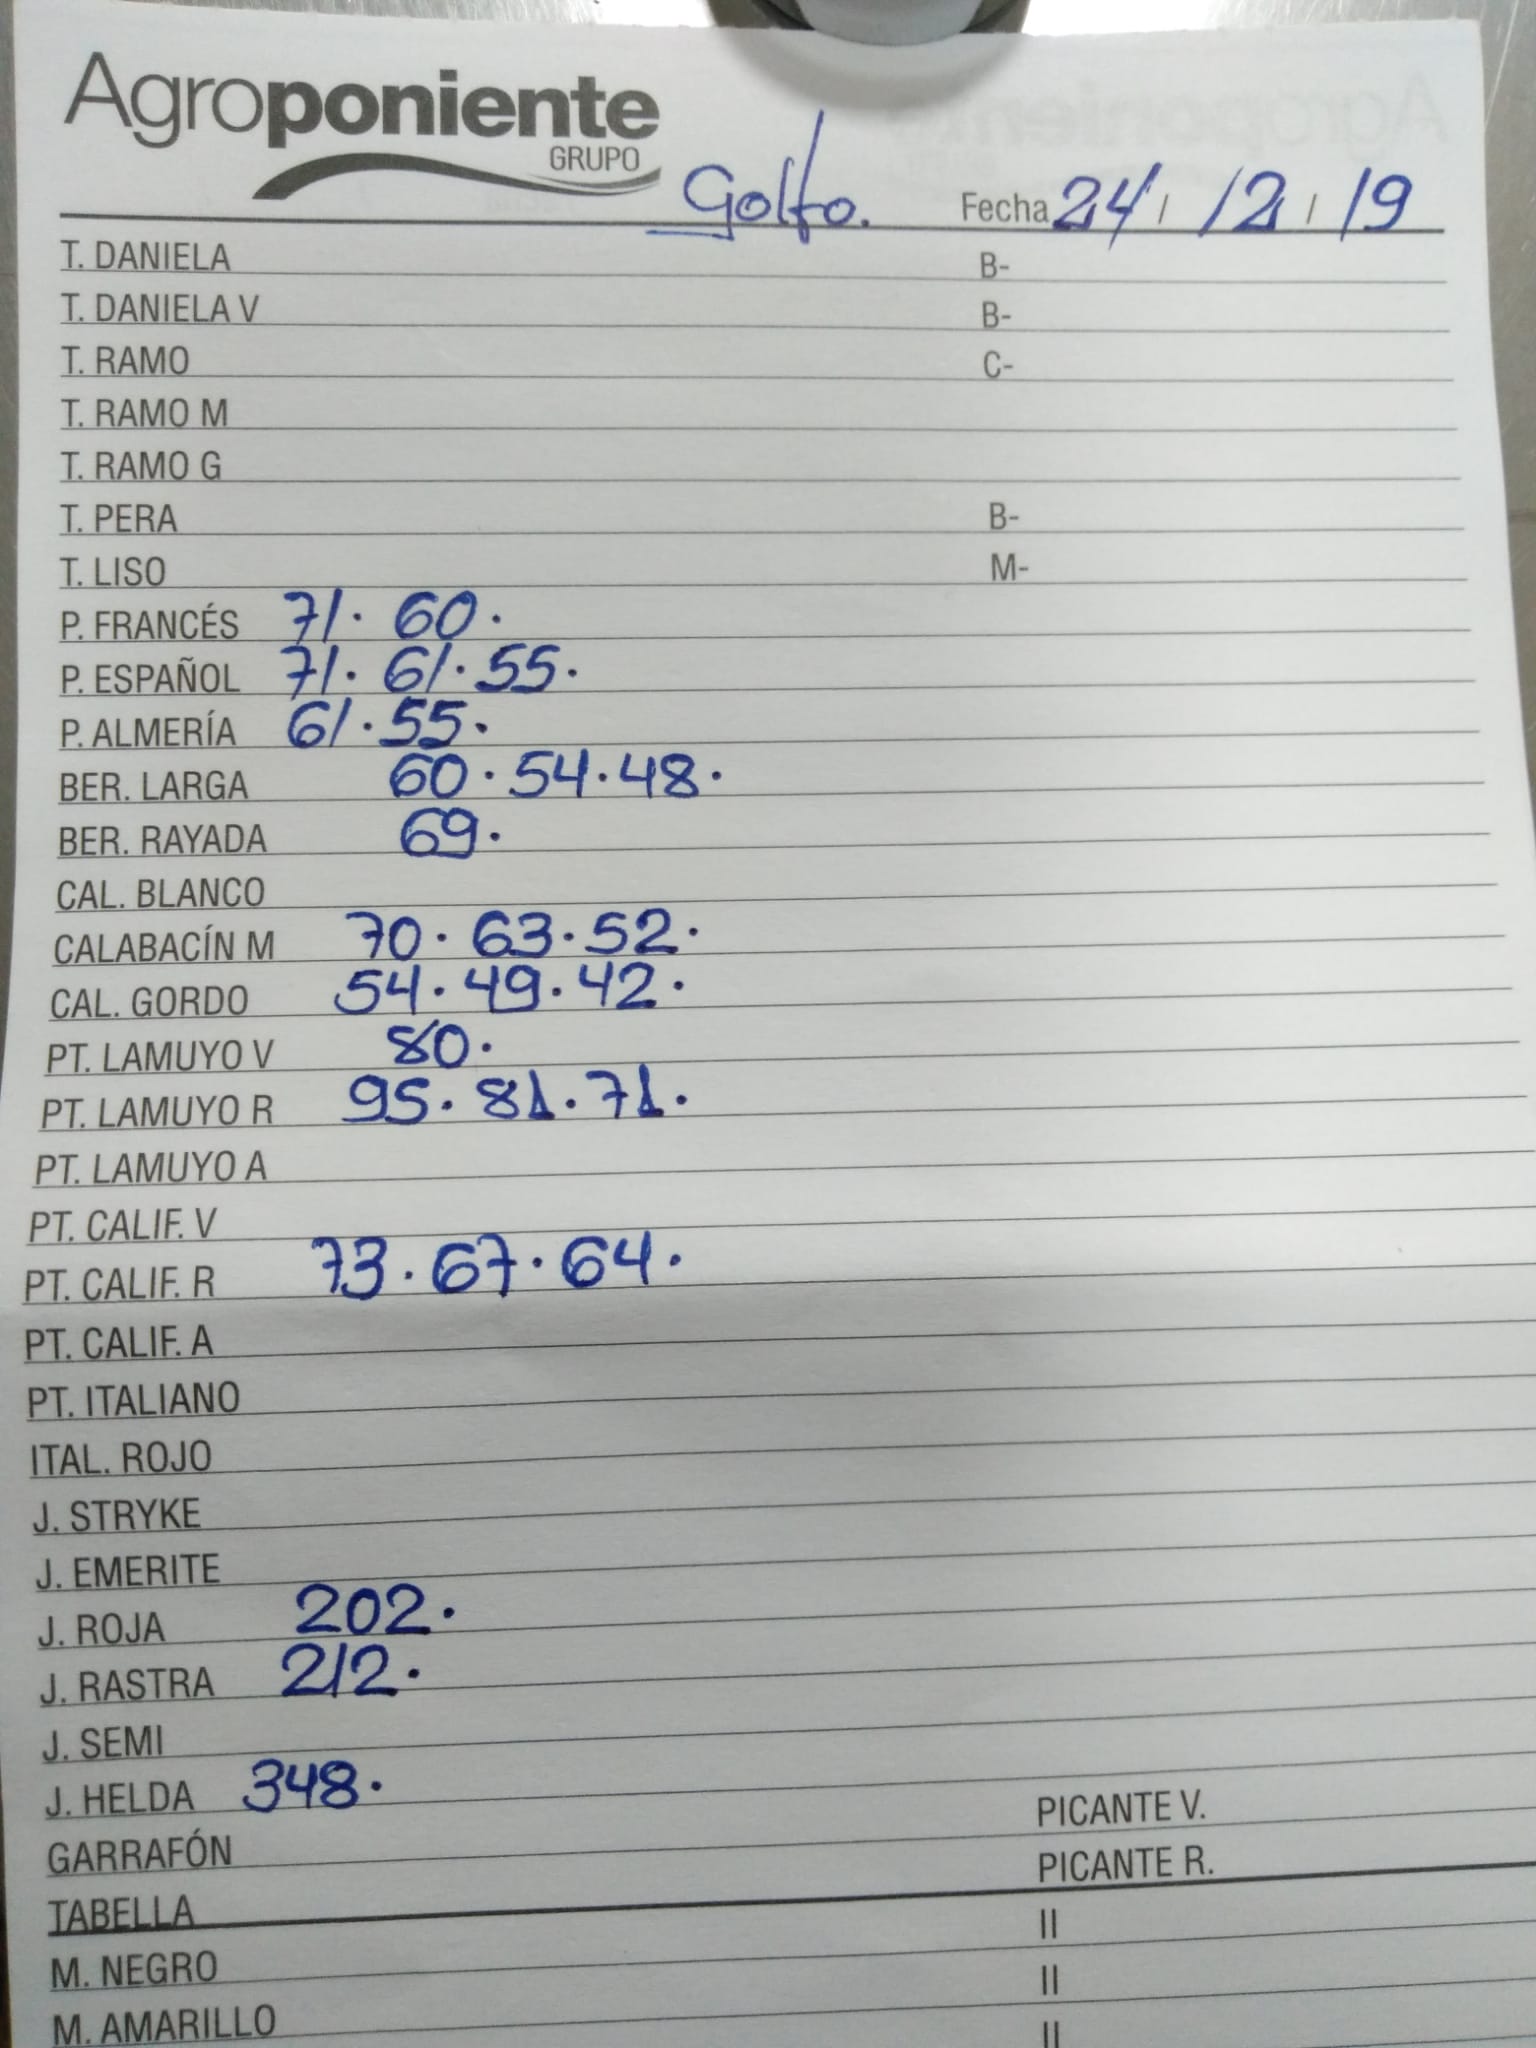 Agroponiente
GRUPO
Golfo. Fecha 24 / 12 / 19
T. DANIELA B-
T. DANIELA V B-
T. RAMO C-
T. RAMO M
T. RAMO G
T. PERA B-
T. LISO M-
P. FRANCÉS 71. 60.
P. ESPAÑOL 71. 61. 55.
P. ALMERÍA 61. 55.
BER. LARGA 60. 54. 48.
BER. RAYADA 69.
CAL. BLANCO
CALABACÍN M 70. 63. 52.
CAL. GORDO 54. 49. 42.
PT. LAMUYO V 80.
PT. LAMUYO R 95. 81. 71.
PT. LAMUYO A
PT. CALIF. V
PT. CALIF. R 73. 67. 64.
PT. CALIF. A
PT. ITALIANO
ITAL. ROJO
J. STRYKE
J. EMERITE
J. ROJA 202.
J. RASTRA 212.
J. SEMI
J. HELDA 348. PICANTE V.
GARRAFÓN PICANTE R.
TABELLA II
M. NEGRO II
M. AMARILLO II